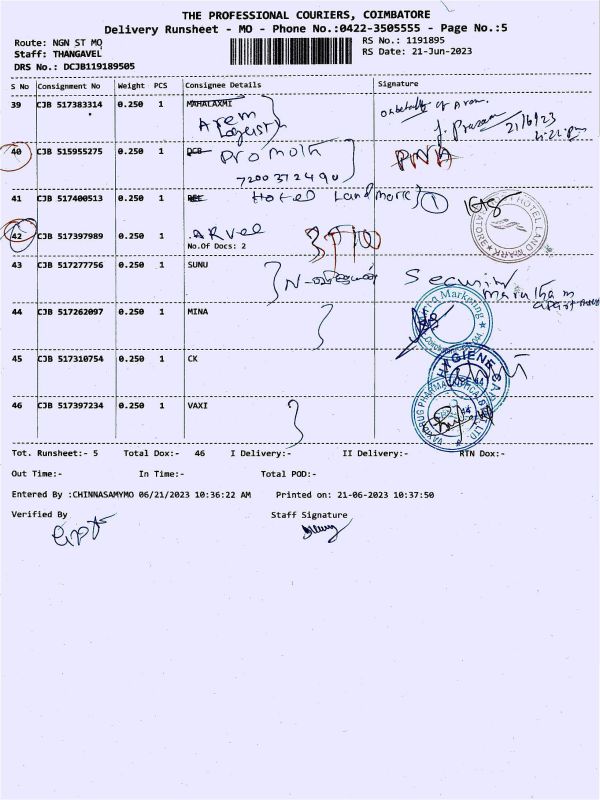 THE PROFESSIONAL COURIERS, COIMBATORE
Delivery Runsheet - MO - Phone No.:0422-3505555 - Page No.:5
Route: NGN ST MO
Staff: THANGAVEL
DRS No.: DCJB119189505
RS No.: 1191895
RS Date: 21-Jun-2023
S No Consignment No Weight PCS Consignee Details Signature
39 CJB 517383314 0.250 1 MAHALAXMI
Arem
J. Prasan 21/6/23
40 CJB 515955275 0.250 1 DCB Promoth PNA
7200372490
41 CJB 517400513 0.250 1 Hotel Landmark 1
HOTEL LAND MARK
42 CJB 517397989 0.250 1 ARVee
No.Of Docs: 2
43 CJB 517277756 0.250 1 SUNU Security
44 CJB 517262097 0.250 1 MINA
Marketing
45 CJB 517310754 0.250 1 CK
HYGIENE
46 CJB 517397234 0.250 1 VAXI
Tot. Runsheet:- 5 Total Dox:- 46 I Delivery:- II Delivery:- RTN Dox:-
Out Time:- In Time:- Total POD:-
Entered By :CHINNASAMYMO 06/21/2023 10:36:22 AM Printed on: 21-06-2023 10:37:50
Verified By Staff Signature